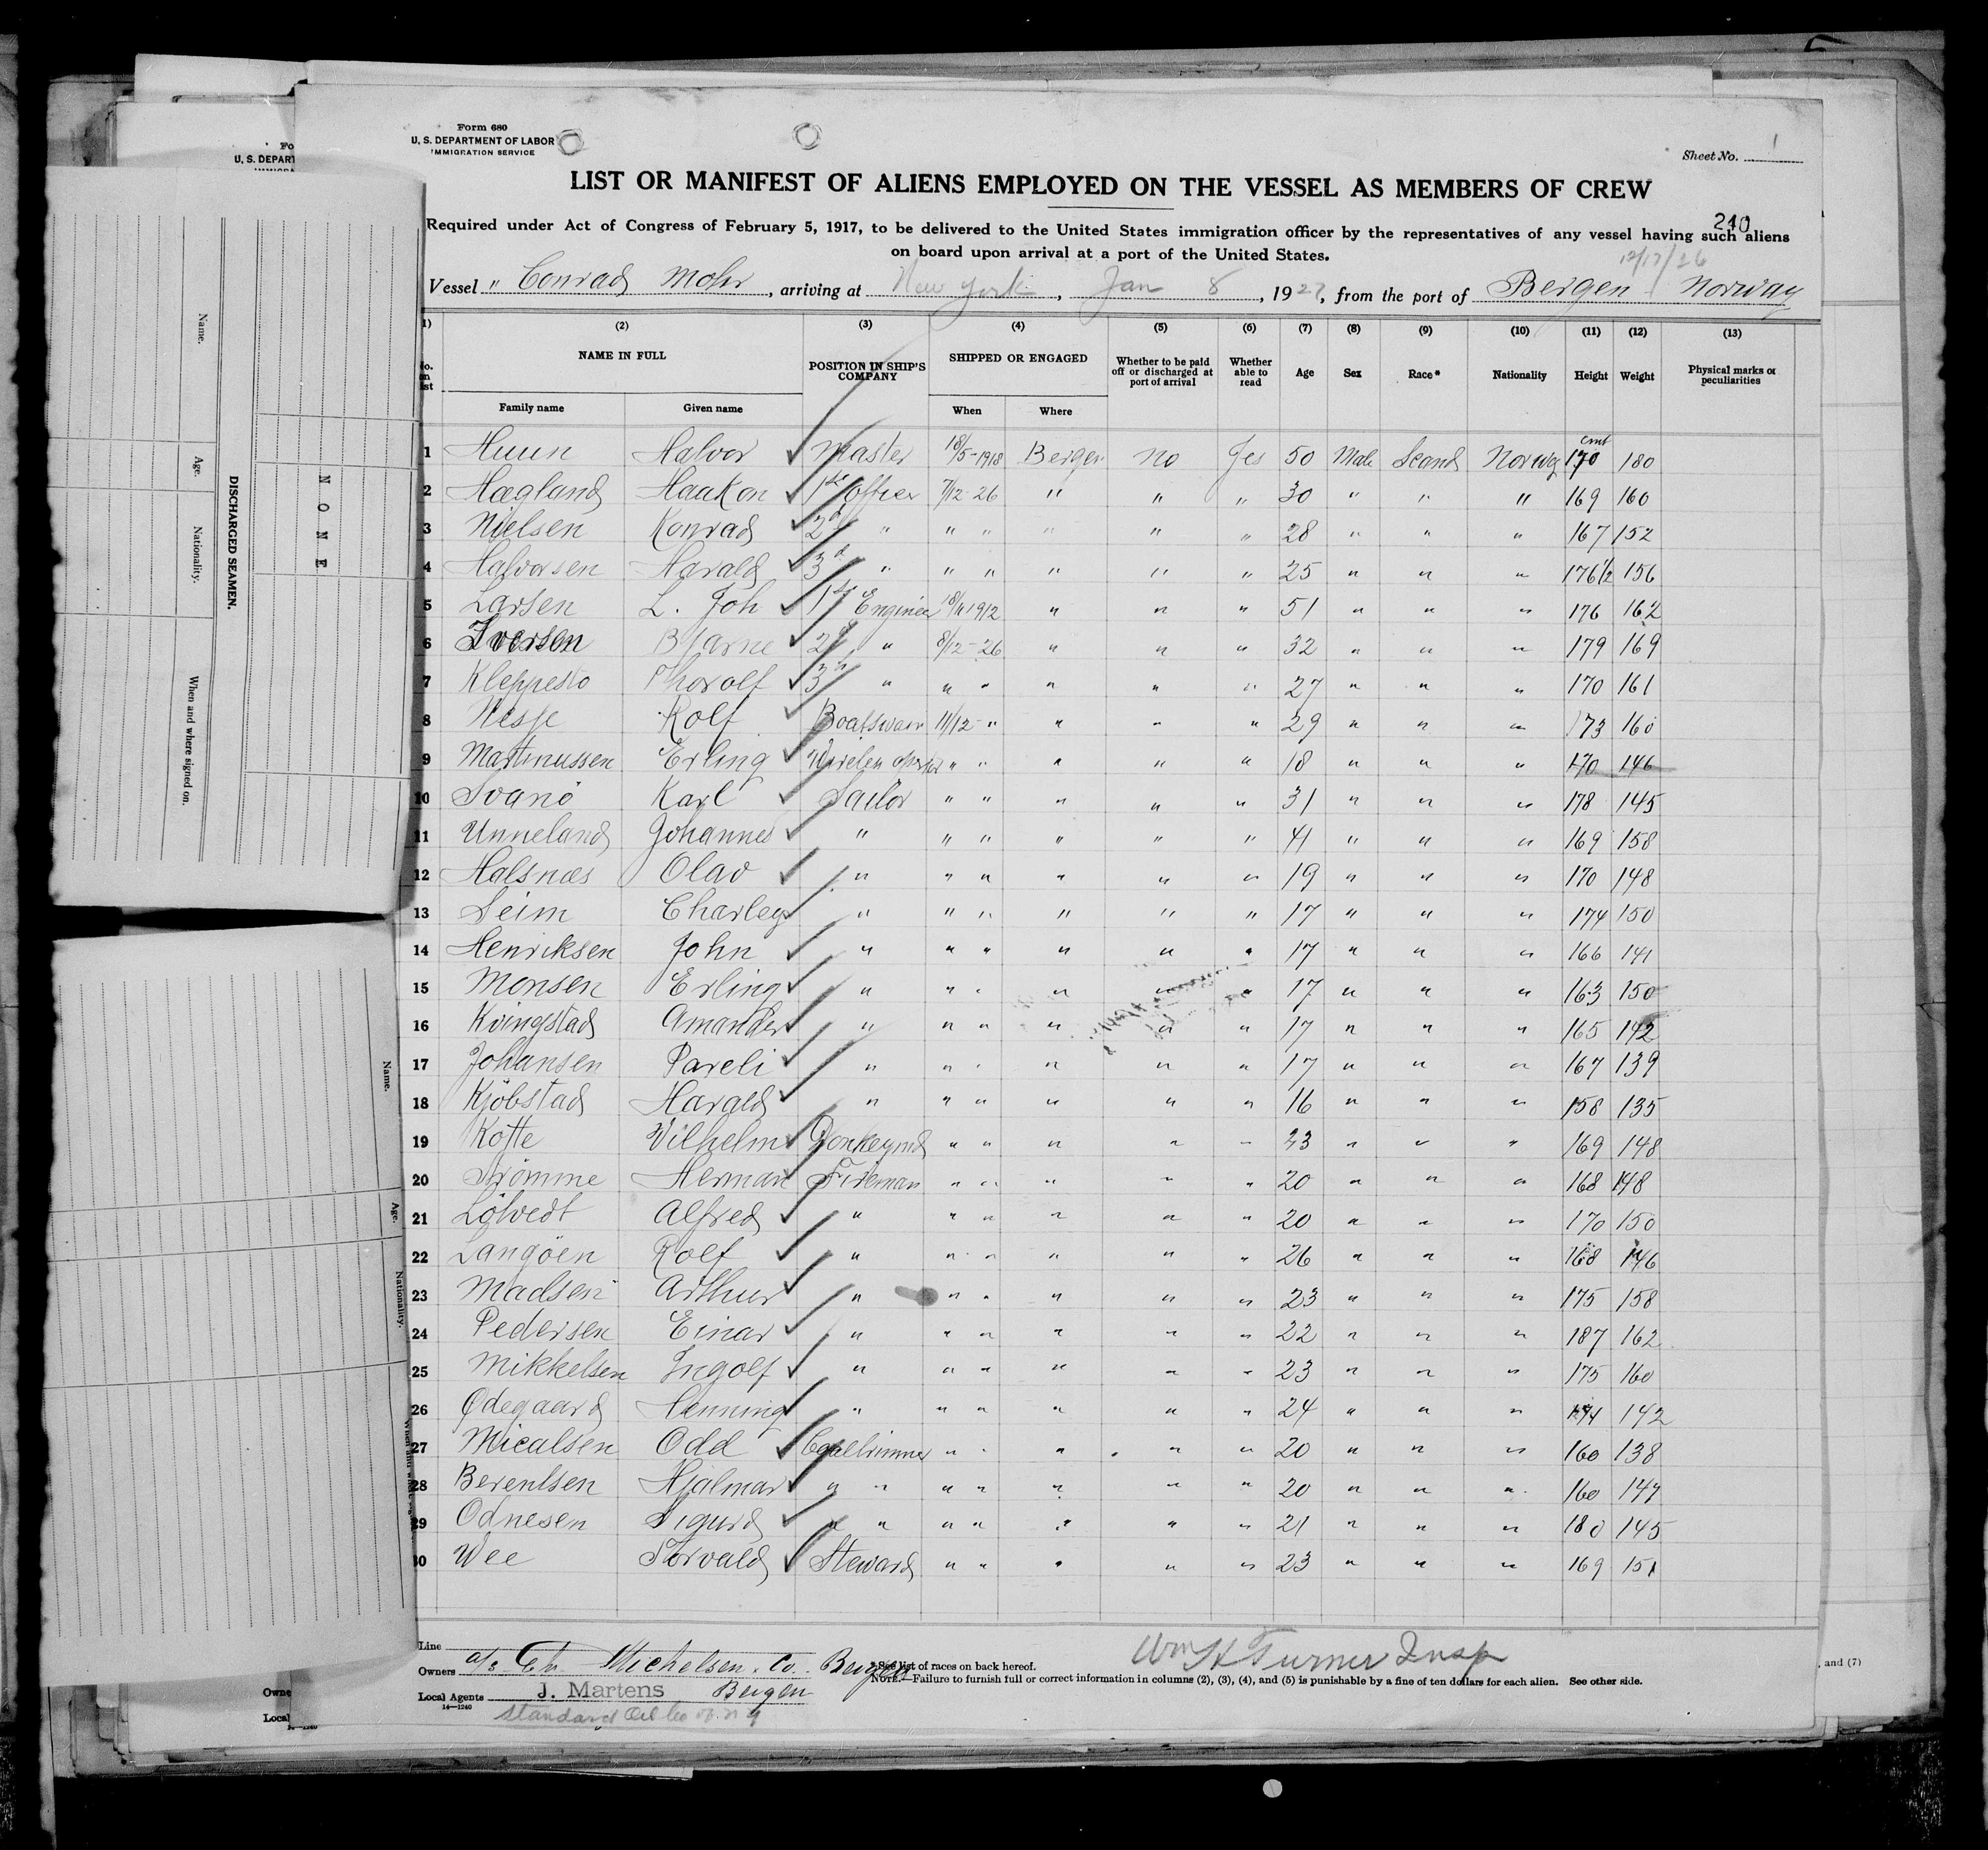 Form 680
U. S. DEPARTMENT OF LABOR
IMMIGRATION SERVICE
Sheet No. 1
LIST OR MANIFEST OF ALIENS EMPLOYED ON THE VESSEL AS MEMBERS OF CREW
240
Required under Act of Congress of February 5, 1917, to be delivered to the United States immigration officer by the representatives of any vessel having such aliens
on board upon arrival at a port of the United States.
12/17/26
Vessel " Conrad Mohr, arriving at New York, Jan 8, 1927, from the port of Bergen Norway
(1) (2) (3) (4) (5) (6) (7) (8) (9) (10) (11) (12) (13)
No. on list NAME IN FULL POSITION IN SHIP'S COMPANY SHIPPED OR ENGAGED Whether to be paid off or discharged at port of arrival Whether able to read Age Sex Race* Nationality Height Weight Physical marks or peculiarities
Family name Given name When Where
1 Huun Halvor ✓ Master 18/5-1918 Bergen No Yes 50 Male Scand Norweg cmt 170 180
2 Hægland Haakon ✓ 1st Officer 7/12-26 " " " 30 " " " 169 160
3 Nielsen Konrad ✓ 2d " " " " " " 28 " " " 167 152
4 Halvorsen Harald ✓ 3d " " " " " " 25 " " " 176 1/2 156
5 Larsen L. Joh ✓ 1st Engineer 18/11 1912 " " " 51 " " " 176 162
6 Iversen Bjarne ✓ 2d " 8/12-26 " " " 32 " " " 179 169
7 Kleppestø Thorolf ✓ 3d " " " " " " 27 " " " 170 161
8 Nesje Rolf ✓ Boatswain 11/12-" " " " 29 " " " 173 160
9 Martinussen Erling ✓ Wireless operator " " " " " 18 " " " 170 146
10 Svanö Karl ✓ Sailor " " " " " 31 " " " 178 145
11 Unneland Johannes ✓ " " " " " " 41 " " " 169 158
12 Halsnæs Olav ✓ " " " " " " 19 " " " 170 148
13 Seim Charley ✓ " " " " " " 17 " " " 174 150
14 Henriksen John ✓ " " " " " " 17 " " " 166 141
15 Monsen Erling ✓ " " " " " " 17 " " " 163 150
16 Kvingstad Amander ✓ " " " " " " 17 " " " 165 142
17 Johansen Pareli ✓ " " " " " " 17 " " " 167 139
18 Kjöbstad Harald ✓ " " " " " " 16 " " " 158 135
19 Kotte Vilhelm ✓ Donkeymd " " " " " 23 " " " 169 148
20 Strömme Herman ✓ Fireman " " " " " 20 " " " 168 148
21 Lölvedt Alfred ✓ " " " " " " 20 " " " 170 150
22 Langöen Rolf ✓ " " " " " " 26 " " " 168 146
23 Madsen Arthur ✓ " " " " " " 23 " " " 175 158
24 Pedersen Einar ✓ " " " " " " 22 " " " 187 162
25 Mikkelsen Ingolf ✓ " " " " " " 23 " " " 175 160
26 Ødegaard Henning ✓ " " " " " " 24 " " " 174 142
27 Micalsen Odd ✓ Coaltrimmer " " " " " 20 " " " 160 138
28 Berentsen Hjalmar ✓ " " " " " " " 20 " " " 160 147
29 Odnesen Sigurd ✓ " " " " " " " 21 " " " 180 145
30 Wee Torvald ✓ Steward " " " " " 23 " " " 169 151
Line
Owners a/s Chr. Michelsen. Co. Bergen
Local Agents J. Martens Bergen
14—1240
Standard Oil Co of N Y
* See list of races on back hereof.
NOTE.—Failure to furnish full or correct information in columns (2), (3), (4), and (5) is punishable by a fine of ten dollars for each alien. See other side.
Wm H Turner Insp
, and (7)
Fo
U. S. DEPART
Owne
Local
DISCHARGED SEAMEN.
Name.
Age.
Nationality.
When and where signed on.
NONE
Name.
Age.
Nationality.